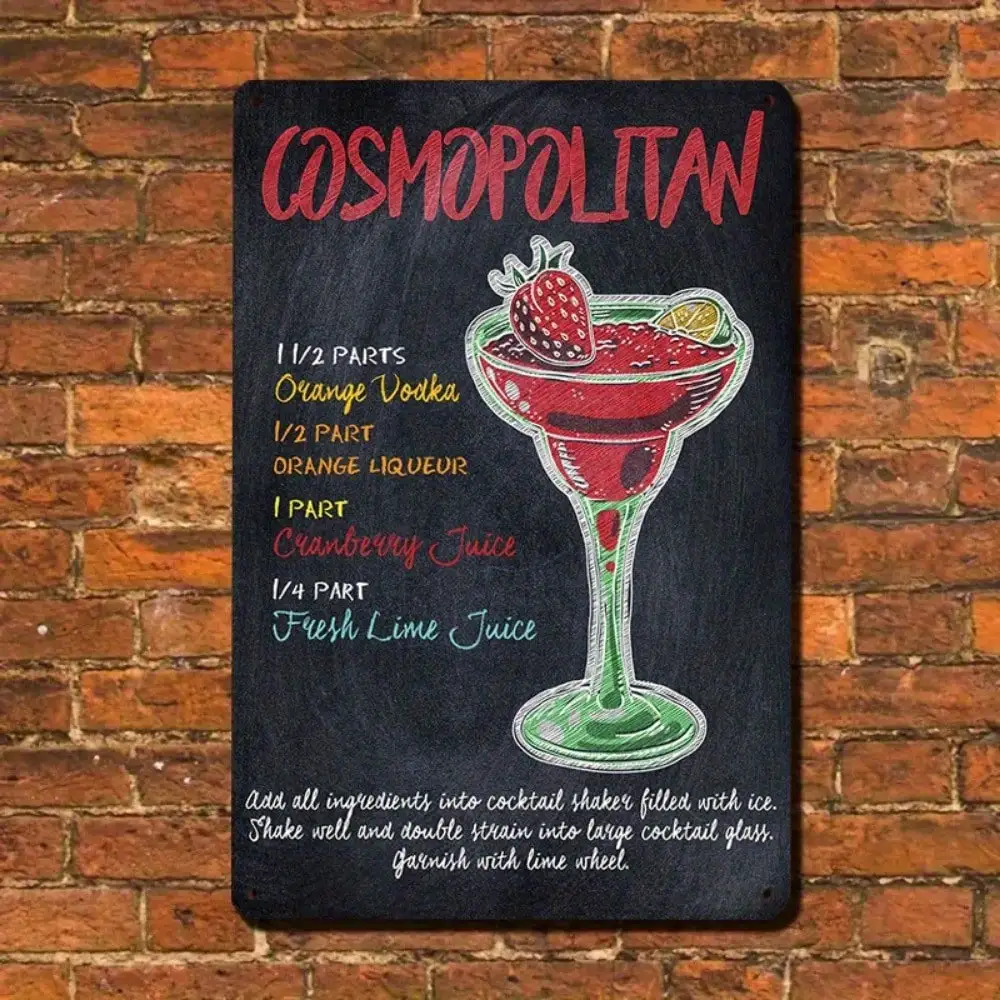 COSMOPOLITAN
1 1/2 PARTS
Orange Vodka
1/2 PART
ORANGE LIQUEUR
1 PART
Cranberry Juice
1/4 PART
Fresh Lime Juice
Add all ingredients into cocktail shaker filled with ice.
Shake well and double strain into large cocktail glass.
Garnish with lime wheel.